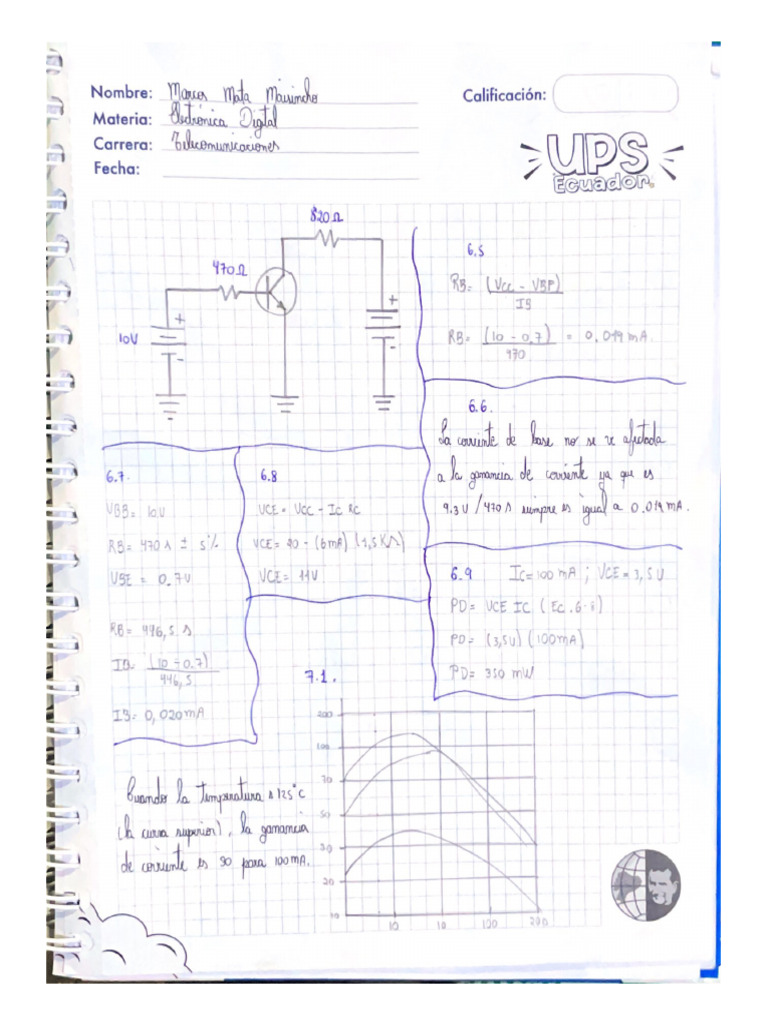 Nombre: Marcos Mata
Materia: Electrónica Digital
Carrera: Telecomunicaciones
Fecha:
Calificación:
UPS
Ecuador.
820Ω
470Ω
+
-
10V
+
-
6.5
RB= (Vcc - VBF)
IB
RB= (10 - 0.7) = 0,019 mA.
470
6.6.
La corriente de base no se ve afectada
a la ganancia de corriente ya que es
9.3V / 470Ω siempre es igual a 0.019 mA.
6.7.
VBB= 10V
RB= 470Ω ± 5%
VBE = 0.7V
RB= 446,5 Ω
IB= (10 - 0.7)
446,5
IB= 0,020mA
6.8
VCE= VCC - IC RC
VCE= 20 - (6mA) (1,5KΩ)
VCE= 11V
6.9 Ic=100 mA ; VCE = 3,5V
PD= VCE IC (Ec. 6-8)
PD= (3,5V) (100mA)
PD= 350 mW
7.1.
Cuando la temperatura 125°C
(la curva superior), la ganancia
de corriente es 90 para 100mA.
200
100
70
50
30
20
10
10
10
100
200